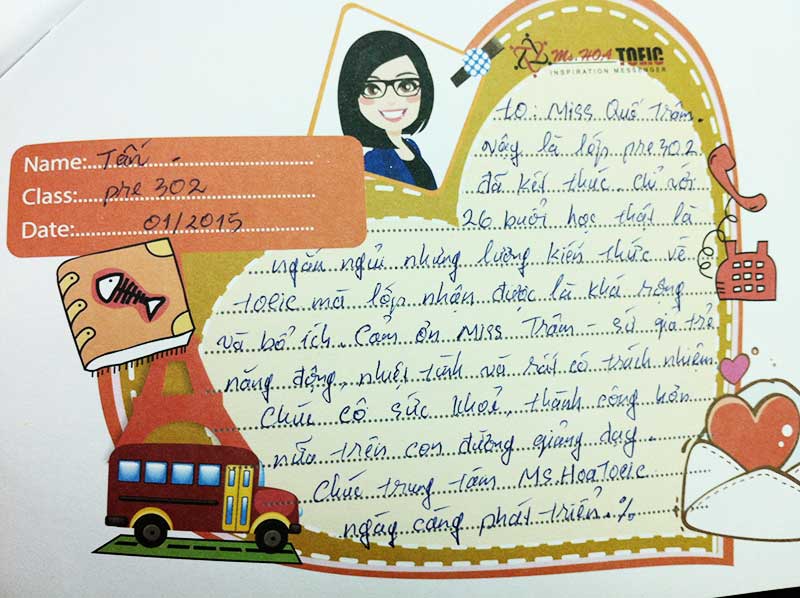 Ms. HOA TOEIC
INSPIRATION MESSENGER
Name: Tấn.
Class: pre 302
Date: 01/2015
to: Miss Quế Trâm.
Vậy là lớp pre 302
đã kết thức. Chỉ với
26 buổi học thật là
ngắn ngủi nhưng lượng kiến thức về
toeic mà lớp nhận được là khá rộng
và bổ ích. Cảm ơn Miss Trâm - sứ giả trẻ
năng động, nhiệt tình và rất có trách nhiệm.
Chúc cô sức khoẻ, thành công hơn
nữa trên con đường giảng dạy.
Chúc trung tâm Ms.HoaToeic
ngày càng phát triển.%